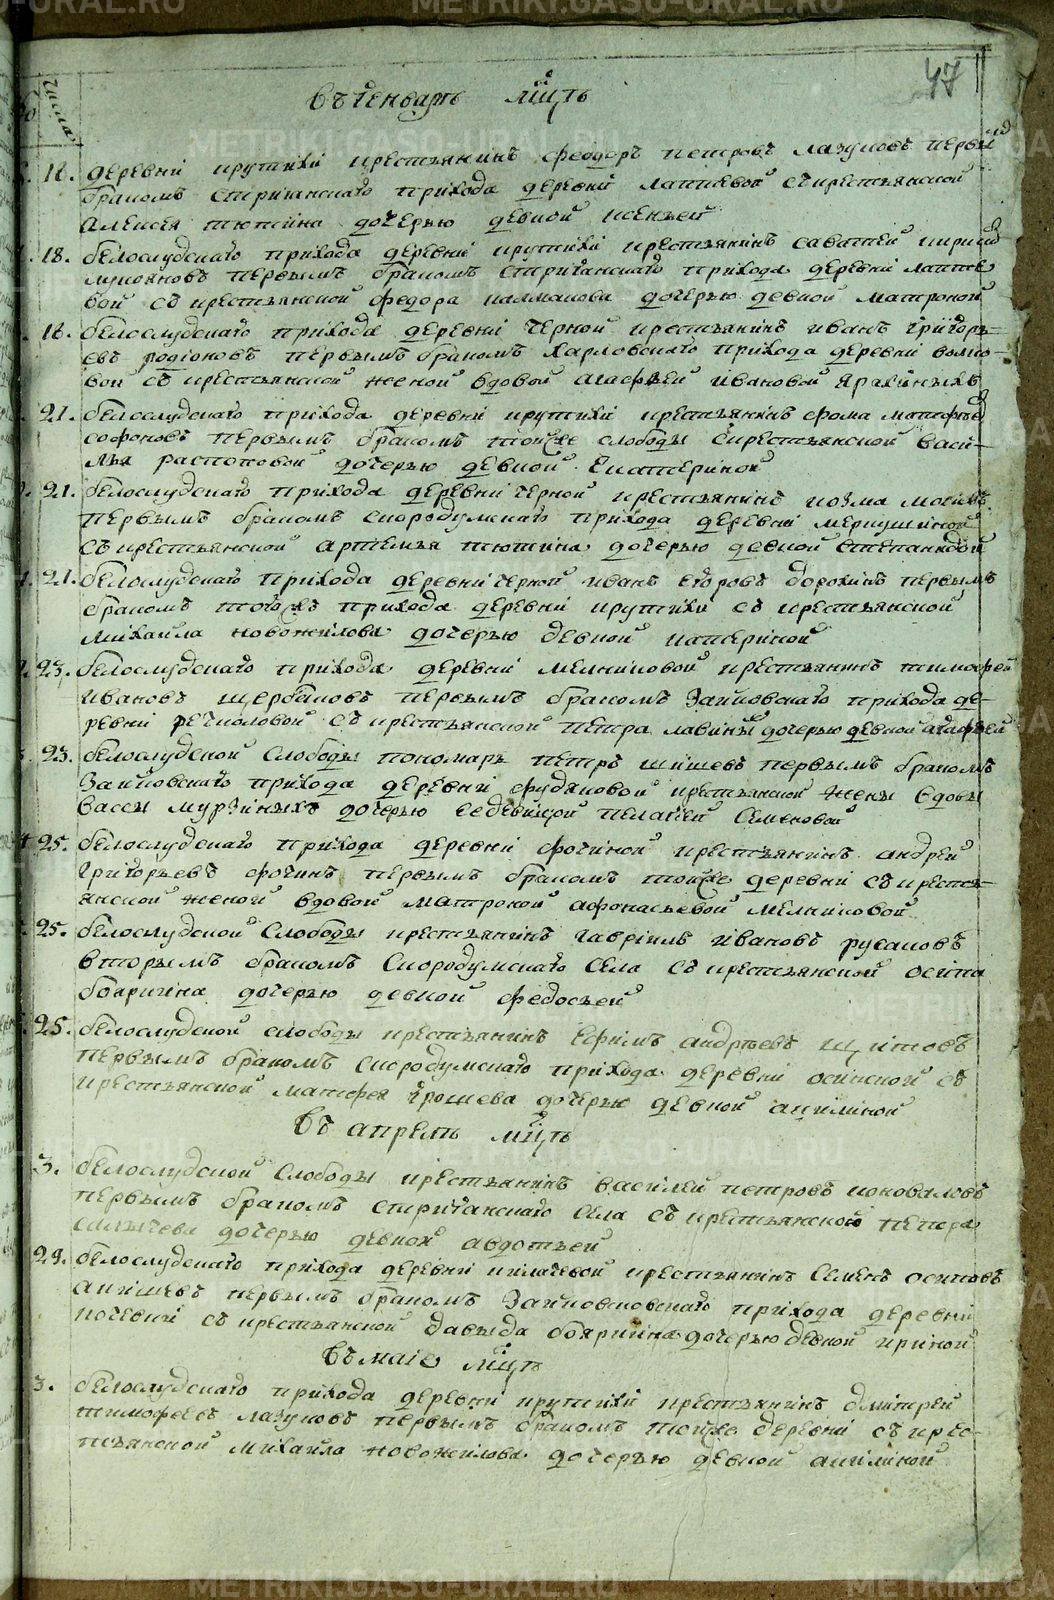 47
числа
въ генварѣ мцѣ
12. деревни крутихи крестьянинъ феодоръ петровъ лазуковъ первым
бракомъ стриганскаго прихода деревни лаптевой съ крестьянской
алексея тюткина дочерью девкой ксеньей
18. белослудскаго прихода деревни крутихи крестьянинъ савватей кирил
лукояновъ первымъ бракомъ стриганскаго прихода деревни лапте
вой съ крестьянской федора калмакова дочерью девкой матроной
16. белослудскаго прихода деревни черной крестьянинъ иванъ григорь
евъ родионовъ первымъ бракомъ харловскаго прихода деревни волко
вой съ крестьянской женой вдовой агафьей ивановой
21. белослудскаго прихода деревни крутихи крестьянинъ фома матфѣе
софоновъ первымъ бракомъ тойже слободы с крестьянской васи
лья распоповой дочерью девкой екатериной
21. белослудскаго прихода деревни черной крестьянинъ козма мокинъ
первымъ бракомъ скородумскаго прихода деревни меркушиной
съ крестьянской артемья тюткина дочерью девкой степанидой
21. белослудскаго прихода деревни черной иванъ егоровъ дорохинъ первымъ
бракомъ тогожъ прихода деревни крутихи съ крестьянской
михаила новожилова дочерью девкой катериной
23. белослудскаго прихода деревни мелниковой крестьянинъ тимофей
ивановъ щербаковъ первымъ бракомъ зайковскаго прихода де
ревни речкаловой съ крестьянской петра лавины дочерью девкой агафьей
23. белослудской слободы пономарь петръ шишевъ первымъ бракомъ
зайковскаго прихода деревни фудяковой крестьянской жены вдовы
васы мурзиныхъ дочерью седевицой пелагией семеновой
25. белослудскаго прихода деревни фочиной крестьянинъ андрей
григорьевъ фочинъ первымъ бракомъ тойже деревни съ кресть
янской женой вдовой матроной афонасьевой мелниковой
25. белослудской слободы крестьянинъ гаврилъ ивановъ русаковъ
вторымъ бракомъ скородумскаго села съ крестьянской осипа
бояркина дочерью девкой федосьей
25. белослудской слободы крестьянинъ ефимъ андрѣевъ щитовъ
первымъ бракомъ скородумскаго прихода деревни осинской съ
крестьянской матфея дочерью девкой акилиной
въ апреле мцѣ
3. белослудской слободы крестьянинъ василей петровъ коноваловъ
первымъ бракомъ стриганскаго села съ крестьянской петра
дочерью девкой авдотьей
29. белослудскаго прихода деревни килачевой крестьянинъ семенъ осиповъ
акишевъ первымъ бракомъ прихода деревни
кочевки съ крестьянской давыда бояркина дочерью девкой ириной
въ маіе мцѣ
3. белослудскаго прихода деревни крутихи крестьянинъ дмитрей
тимофеевъ лазуковъ первымъ бракомъ тойже деревни съ крес
тьянской михаила новожилова дочерью девкой акилиной
METRIKI.GASO-URAL.RU